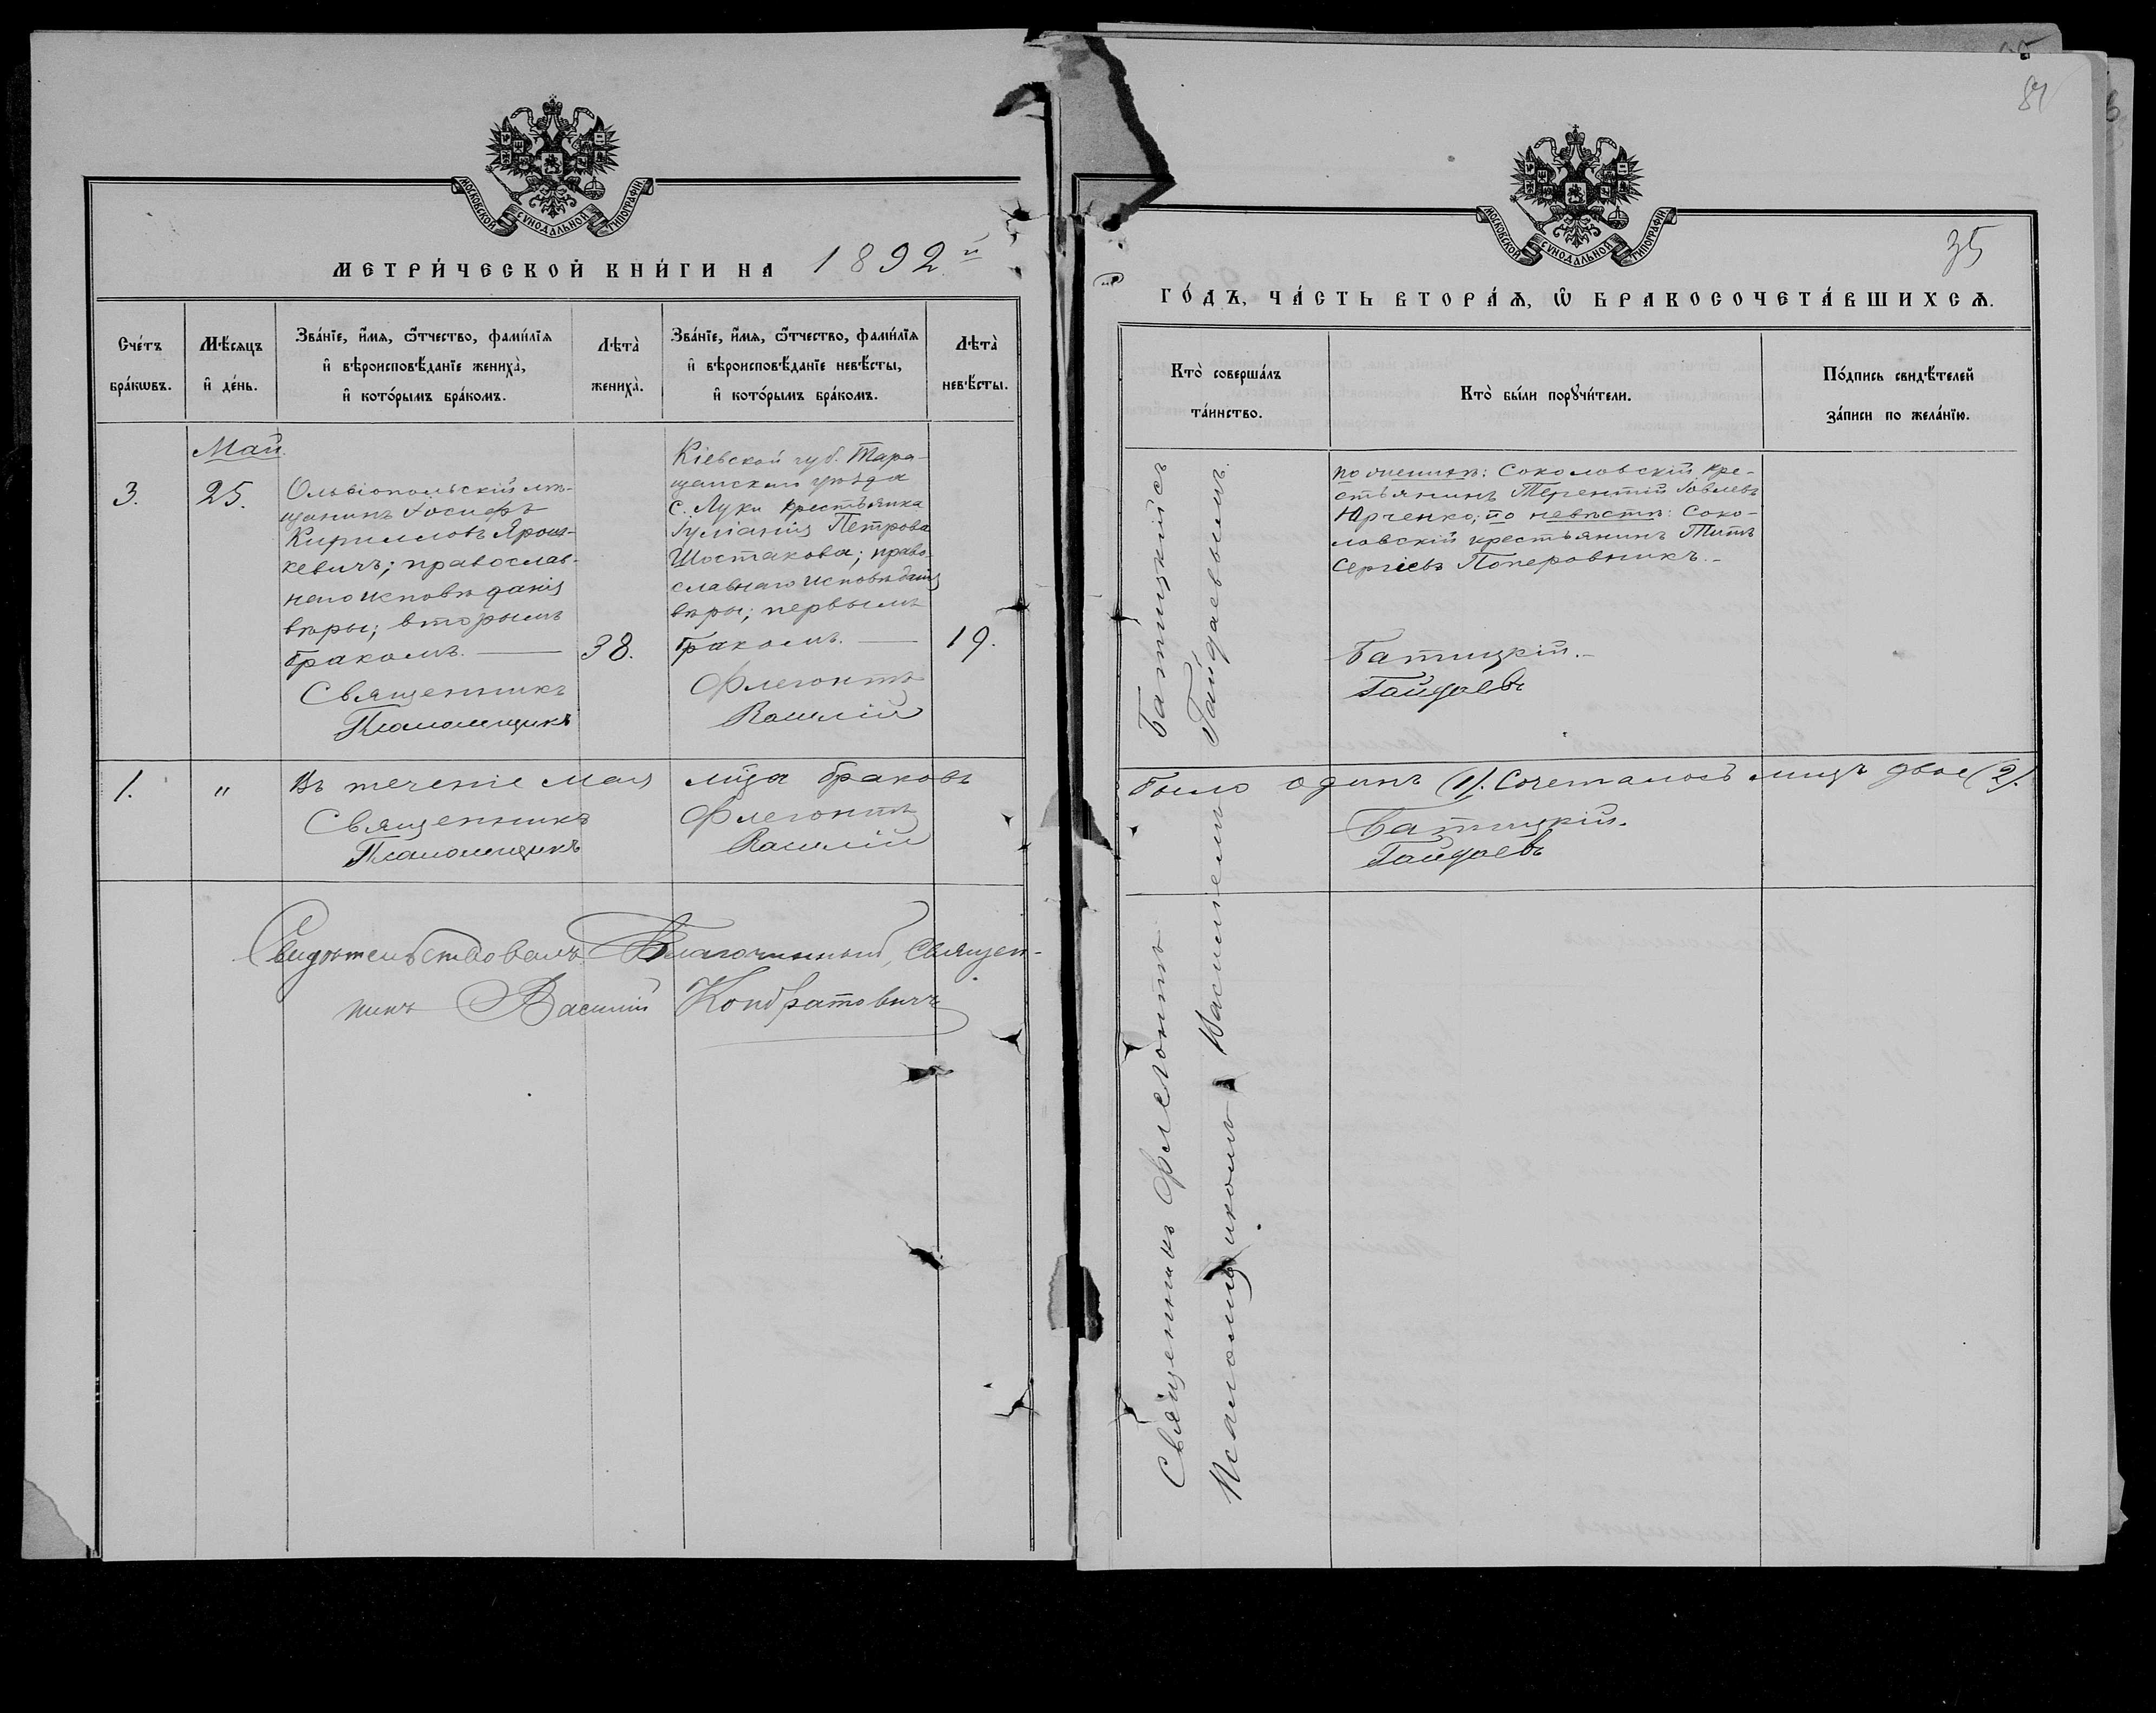 МОСКОВСКОЙ СѴНОДАЛЬНОЙ ТИПОГРАФІИ.
МЕТРИ́ЧЕСКОЙ КНИ́ГИ НА 1892й
Сче́тъ бра́кѡвъ.
Мѣ́сѧцъ и҆ де́нь.
Зва́нїе, и҆́мѧ, ѻ҆́тчество, фами́лїѧ и҆ вѣроисповѣ́данїе жениха̀, и҆ кото́рымъ бра́комъ.
Лѣта̀ жениха̀.
Зва́нїе, и҆́мѧ, ѻ҆́тчество, фами́лїѧ и҆ вѣроисповѣ́данїе невѣ́сты, и҆ кото́рымъ бра́комъ.
Лѣта̀ невѣ́сты.
Май.
3.
25.
Ольвіопольскій мѣ-
щанинъ Іосифъ
Кирилловъ Ярош-
кевичъ; православ-
наго исповѣданія
вѣры; вторымъ
бракомъ.
38.
Священникъ
Псаломщикъ
Кіевской губ. Тара-
щанскаго уѣзда
с. Луки крестьянка
Іуліанія Петрова
Шостакова; право-
славнаго исповѣданія
вѣры; первымъ
бракомъ.
19.
Флегонтъ
Василій
1.
"
Въ теченіе мая м-ца браковъ
Священникъ Флегонтъ
Псаломщикъ Василій
Свидѣтельствовалъ Благочинный, Священ-
никъ Василій Кондратовичъ
84
МОСКОВСКОЙ СѴНОДАЛЬНОЙ ТИПОГРАФІИ.
35
ГО́ДЪ, ЧА́СТЬ ВТОРА́Ѧ, Ѡ҆ БРАКОСОЧЕТА́ВШИХСѦ.
Кто̀ соверша́лъ та́инство.
Кто̀ бы́ли порꙋчи́тели.
По́дпись свидѣ́телей за́писи по жела́нїю.
Священникъ Флегонтъ Батицкій съ
Псаломщикомъ Василіемъ Гайдаевымъ.
по женихѣ: Соколовскій кре-
стьянинъ Терентій Іовлевъ
Юрченко; по невѣстѣ: Соко-
ловскій крестьянинъ Титъ
Сергіевъ Поперовникъ.
Батицкій.
Гайдаевъ
было одинъ (1). Сочеталось лицъ двое (2).
Батицкій.
Гайдаевъ